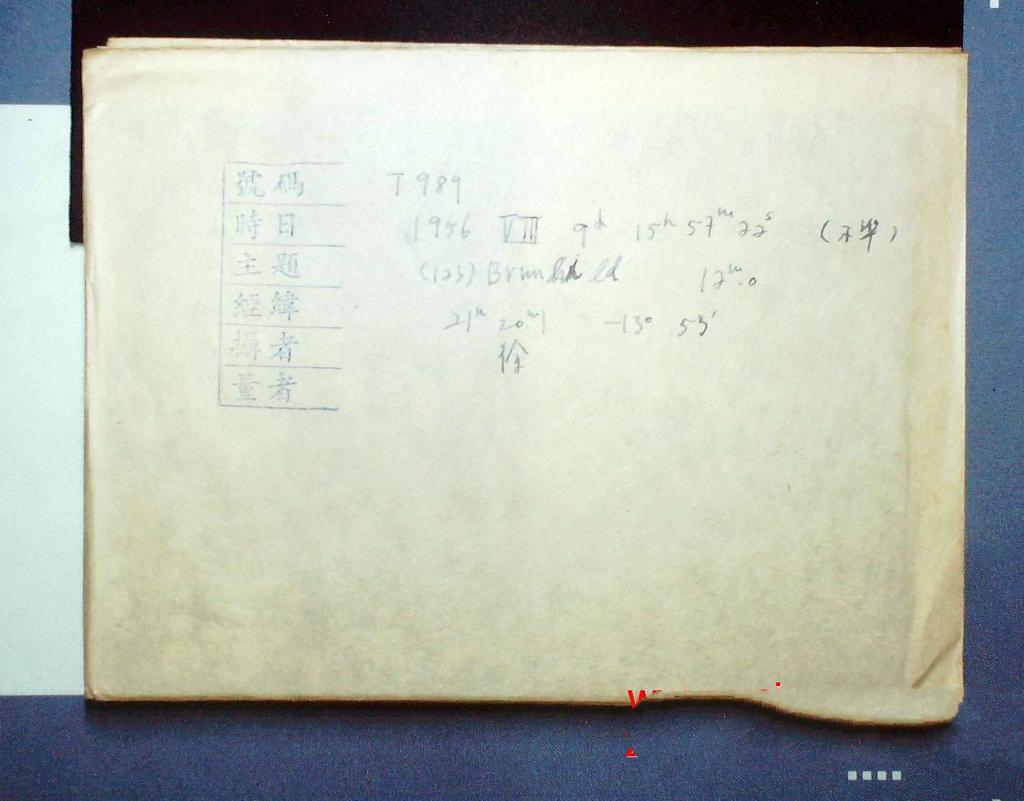 號碼 T 989
時日 1956 VIII 9d 15h 57m 22s (不準)
主題 (123) Brunhild 12m.0
經緯 21h 20m1 -13° 53'
攝者 徐
量者